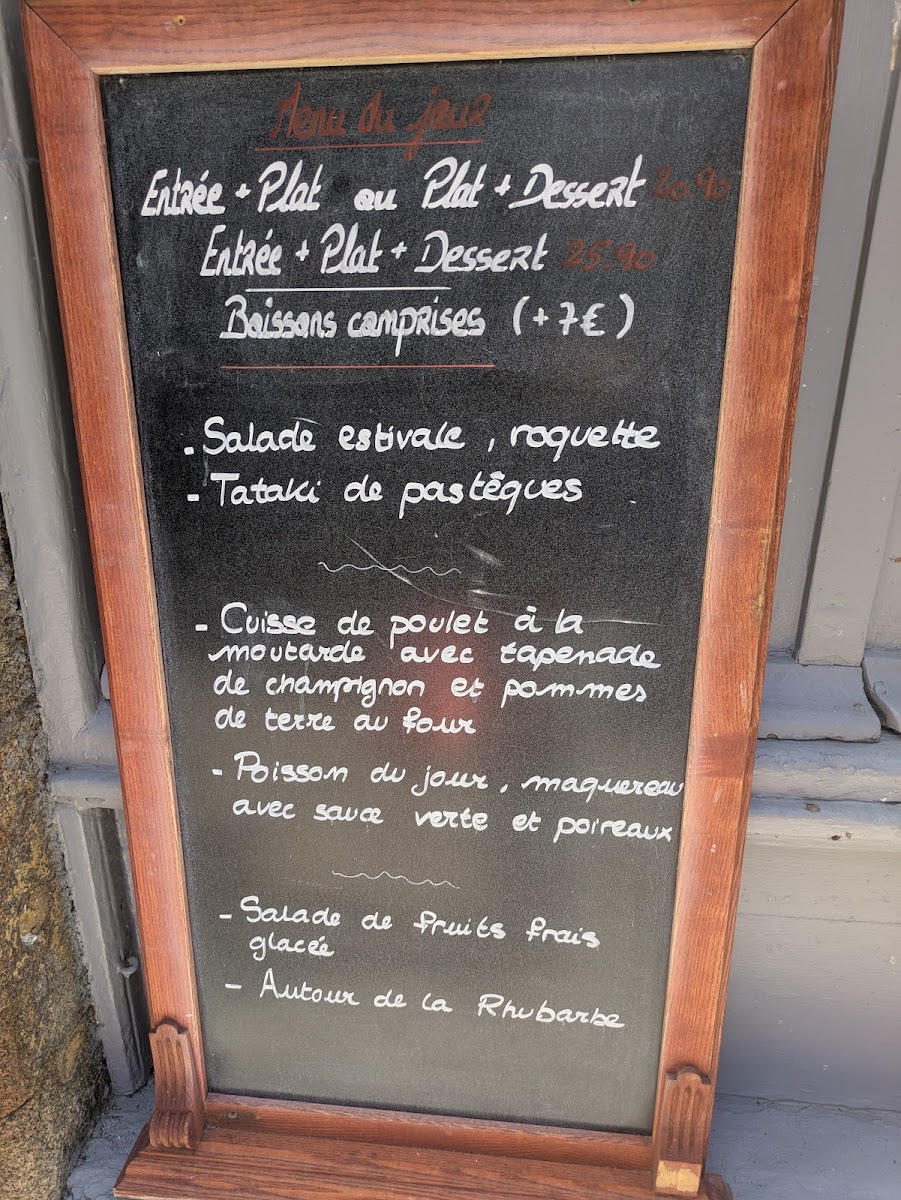 Menu du jour
Entrée + Plat ou Plat + Dessert 20.90
Entrée + Plat + Dessert 25.90
Boissons comprises (+7€)
- Salade estivale, roquette
- Tataki de pastêques
- Cuisse de poulet à la
moutarde avec tapenade
de champignon et pommes
de terre au four
- Poisson du jour, maquereau
avec sauce verte et poireaux
- Salade de fruits frais
glacée
- Autour de la Rhubarbe